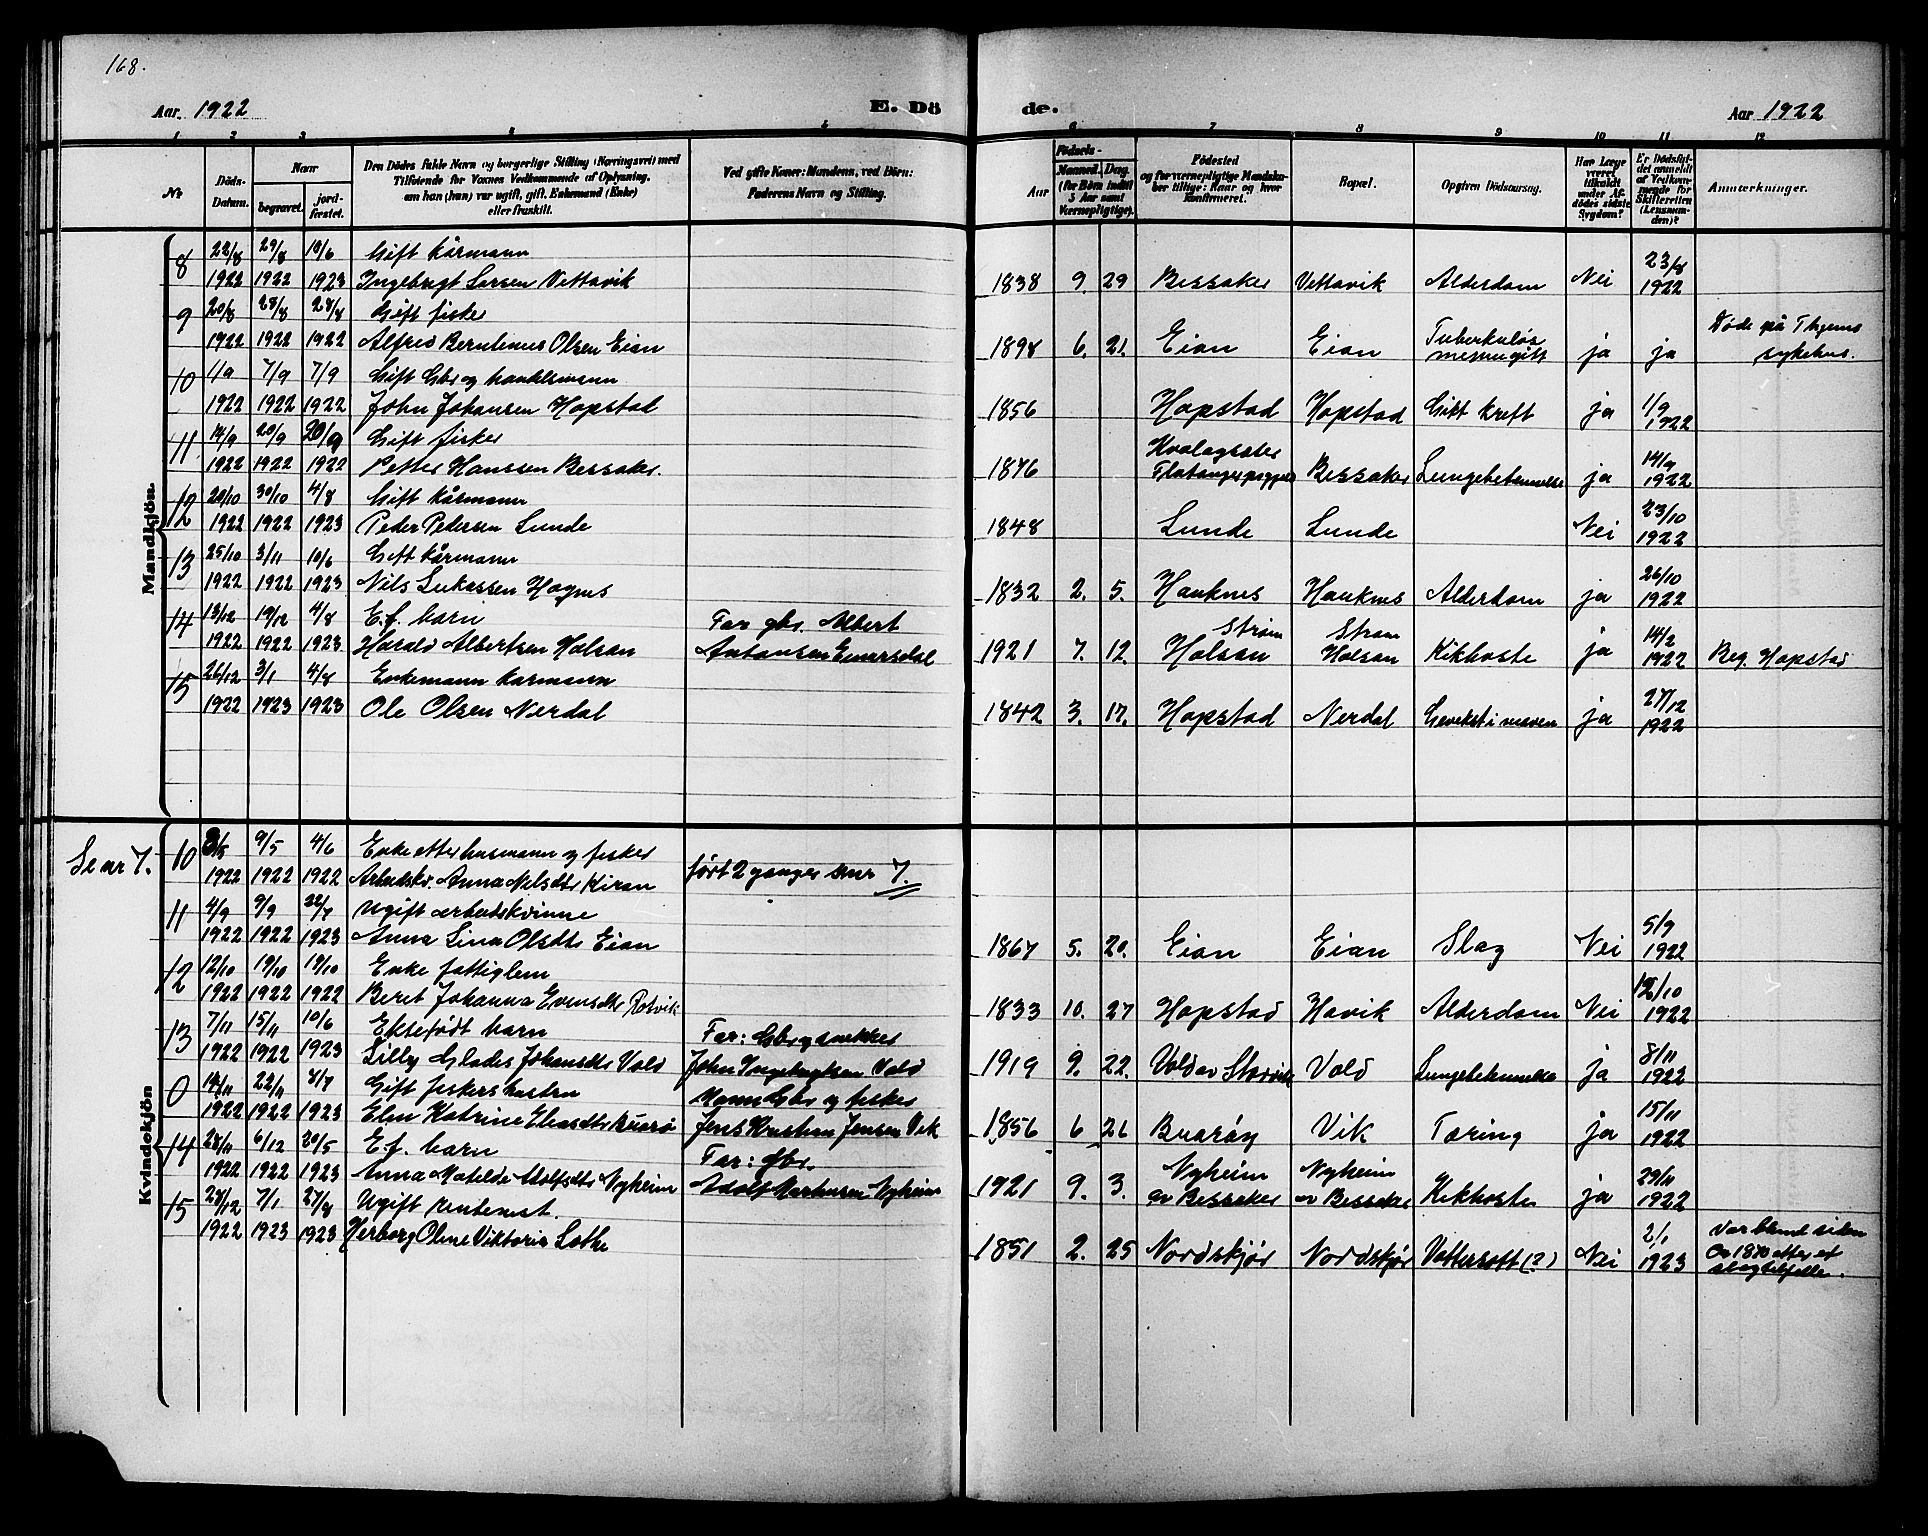 168.
Aar 1922 E. Dö de. Aar 1922
1 2 3 4 5 6 7 8 9 10 11 12
No Döds-Datum. Naar begravet. jordfæstet. Den Dödes fulde Navn og borgerlige Stilling (Næringsvei) med Tilföiende for Voxnes Vedkommende af Oplysning, om han (hun) var ugift, gift, Enkemand (Enke) eller fraskilt. Ved gifte Koner: Mandens, ved Börn: Faderens Navn og Stilling. Aar Födsels- Maaned. Dag. (for Børn indtil 5 Aar samt Værnepligtige). Födested og for værnepligtige Mandskaber tillige: Naar og hvor konfirmeret. Bopæl. Opgiven Dödsaarsag. Har Læge været tilkaldt under Afdödes sidste Sygdom? Er Dödsfaldet anmeldt af Vedkommende for Skifteretten (Lensmanden)? Anmærkninger.
Mandkjön.
8 22/8 29/8 10/6 Gift kårmann
1922 1922 1923 Ingebrigt Larsen Vettavik 1838 9. 29 Bessaker Vettavik Alderdom Nei 23/8 1922
9 20/8 28/8 28/8 Gift fisker
1922 1922 1922 Alfred Berntinus Olsen Eian 1898 6. 21. Eian Eian Tuberkuløs ja ja Døde på Thjems sykehus.
10 1/9 7/9 7/9 Gift Gbr og handelsmann
1922 1922 1922 John Johansen Hopstad 1856 Hopstad Hopstad Gift kreft ja 1/9 1922
11 14/9 20/9 20/9 Gift fisker
1922 1922 1922 Petter Hanssen Bessaker. 1876 Bessaker Lungebetennelse ja 14/9 1922
12 20/10 30/10 4/8 Gift kårmann
1922 1922 1923 Peder Pedersen Lunde 1848 Lunde Lunde Nei 23/10 1922
13 25/10 3/11 10/6 Gift kårmann
1922 1922 1923 Nils Lukassen 1832 2. 5. Hauknes Hauknes Alderdom ja 26/10 1922
14 13/12 19/12 4/8 E.f. barn Far gbr. Albert
1922 1922 1923 Harald Albertsen Holsan Antonsen 1921 7. 12. Strøm Holsan Strøm Holsan Kikhoste ja 14/2 1922 Beg. Hopstad
15 26/12 3/1 4/8 Enkemann karmann
1922 1923 1923 Ole Olsen Nerdal 1842 3. 17. Hopstad Nerdal Gevekst i maven ja 27/12 1922
Kvindekjön
Se nr 7. 10 3/5 9/5 4/6 Enke etter husmann og fisker
1922 1922 1922 Arbeidskv. Anna Nilsdtr Kiran ført 2 ganger se nr 7.
11 4/9 9/9 22/7 Ugift arbeidskvinne
1922 1922 1923 Anna Lina Olsdtr Eian 1867 5. 20. Eian Eian Slag Nei 5/9 1922
12 12/10 19/10 19/10 Enke fattiglem
1922 1922 1922 Beret Johanna Evensdtr Rotvik 1833 10. 27 Hopstad Havik Alderdom Nei 12/10 1922
13 7/11 15/11 10/6 Ektefødt barn Far: Gbr og snekker
1922 1922 1923 Lilly Glades Johansdtr Vold John Ingebrigtsen Vold 1919 9. 22. Vold av Storvik Vold Lungebetennelse ja 8/11 1922
0 14/11 22/11 8/7 Gift fiskers hustru Mann Gbr og fisker
1922 1922 1923 Elen Katrine Eliasdtr Buarø Jens Kristian Jensen Vik 1856 6 26 Buarøy Vik Tæring ja 15/11 1922
14 28/11 6/12 20/5 E.f. barn Far: Gbr.
1922 1922 1923 Anna Matilde Adolfsdtr Nyheim Adolf Markusen Nyheim 1921 9. 3. Nyheim av Bessaker Nyheim av Bessaker Kikhoste ja 29/11 1922
15 28/12 7/1 27/8 Ugift rentenist.
1922 1923 1923 Herborg Oline Viktoria Lothe 1851 2. 25 Nordskjør Nordskjør Vattersott (?) Nei 2/1 1923 Var blind siden Ca 1870 etter et slagtilfelle.